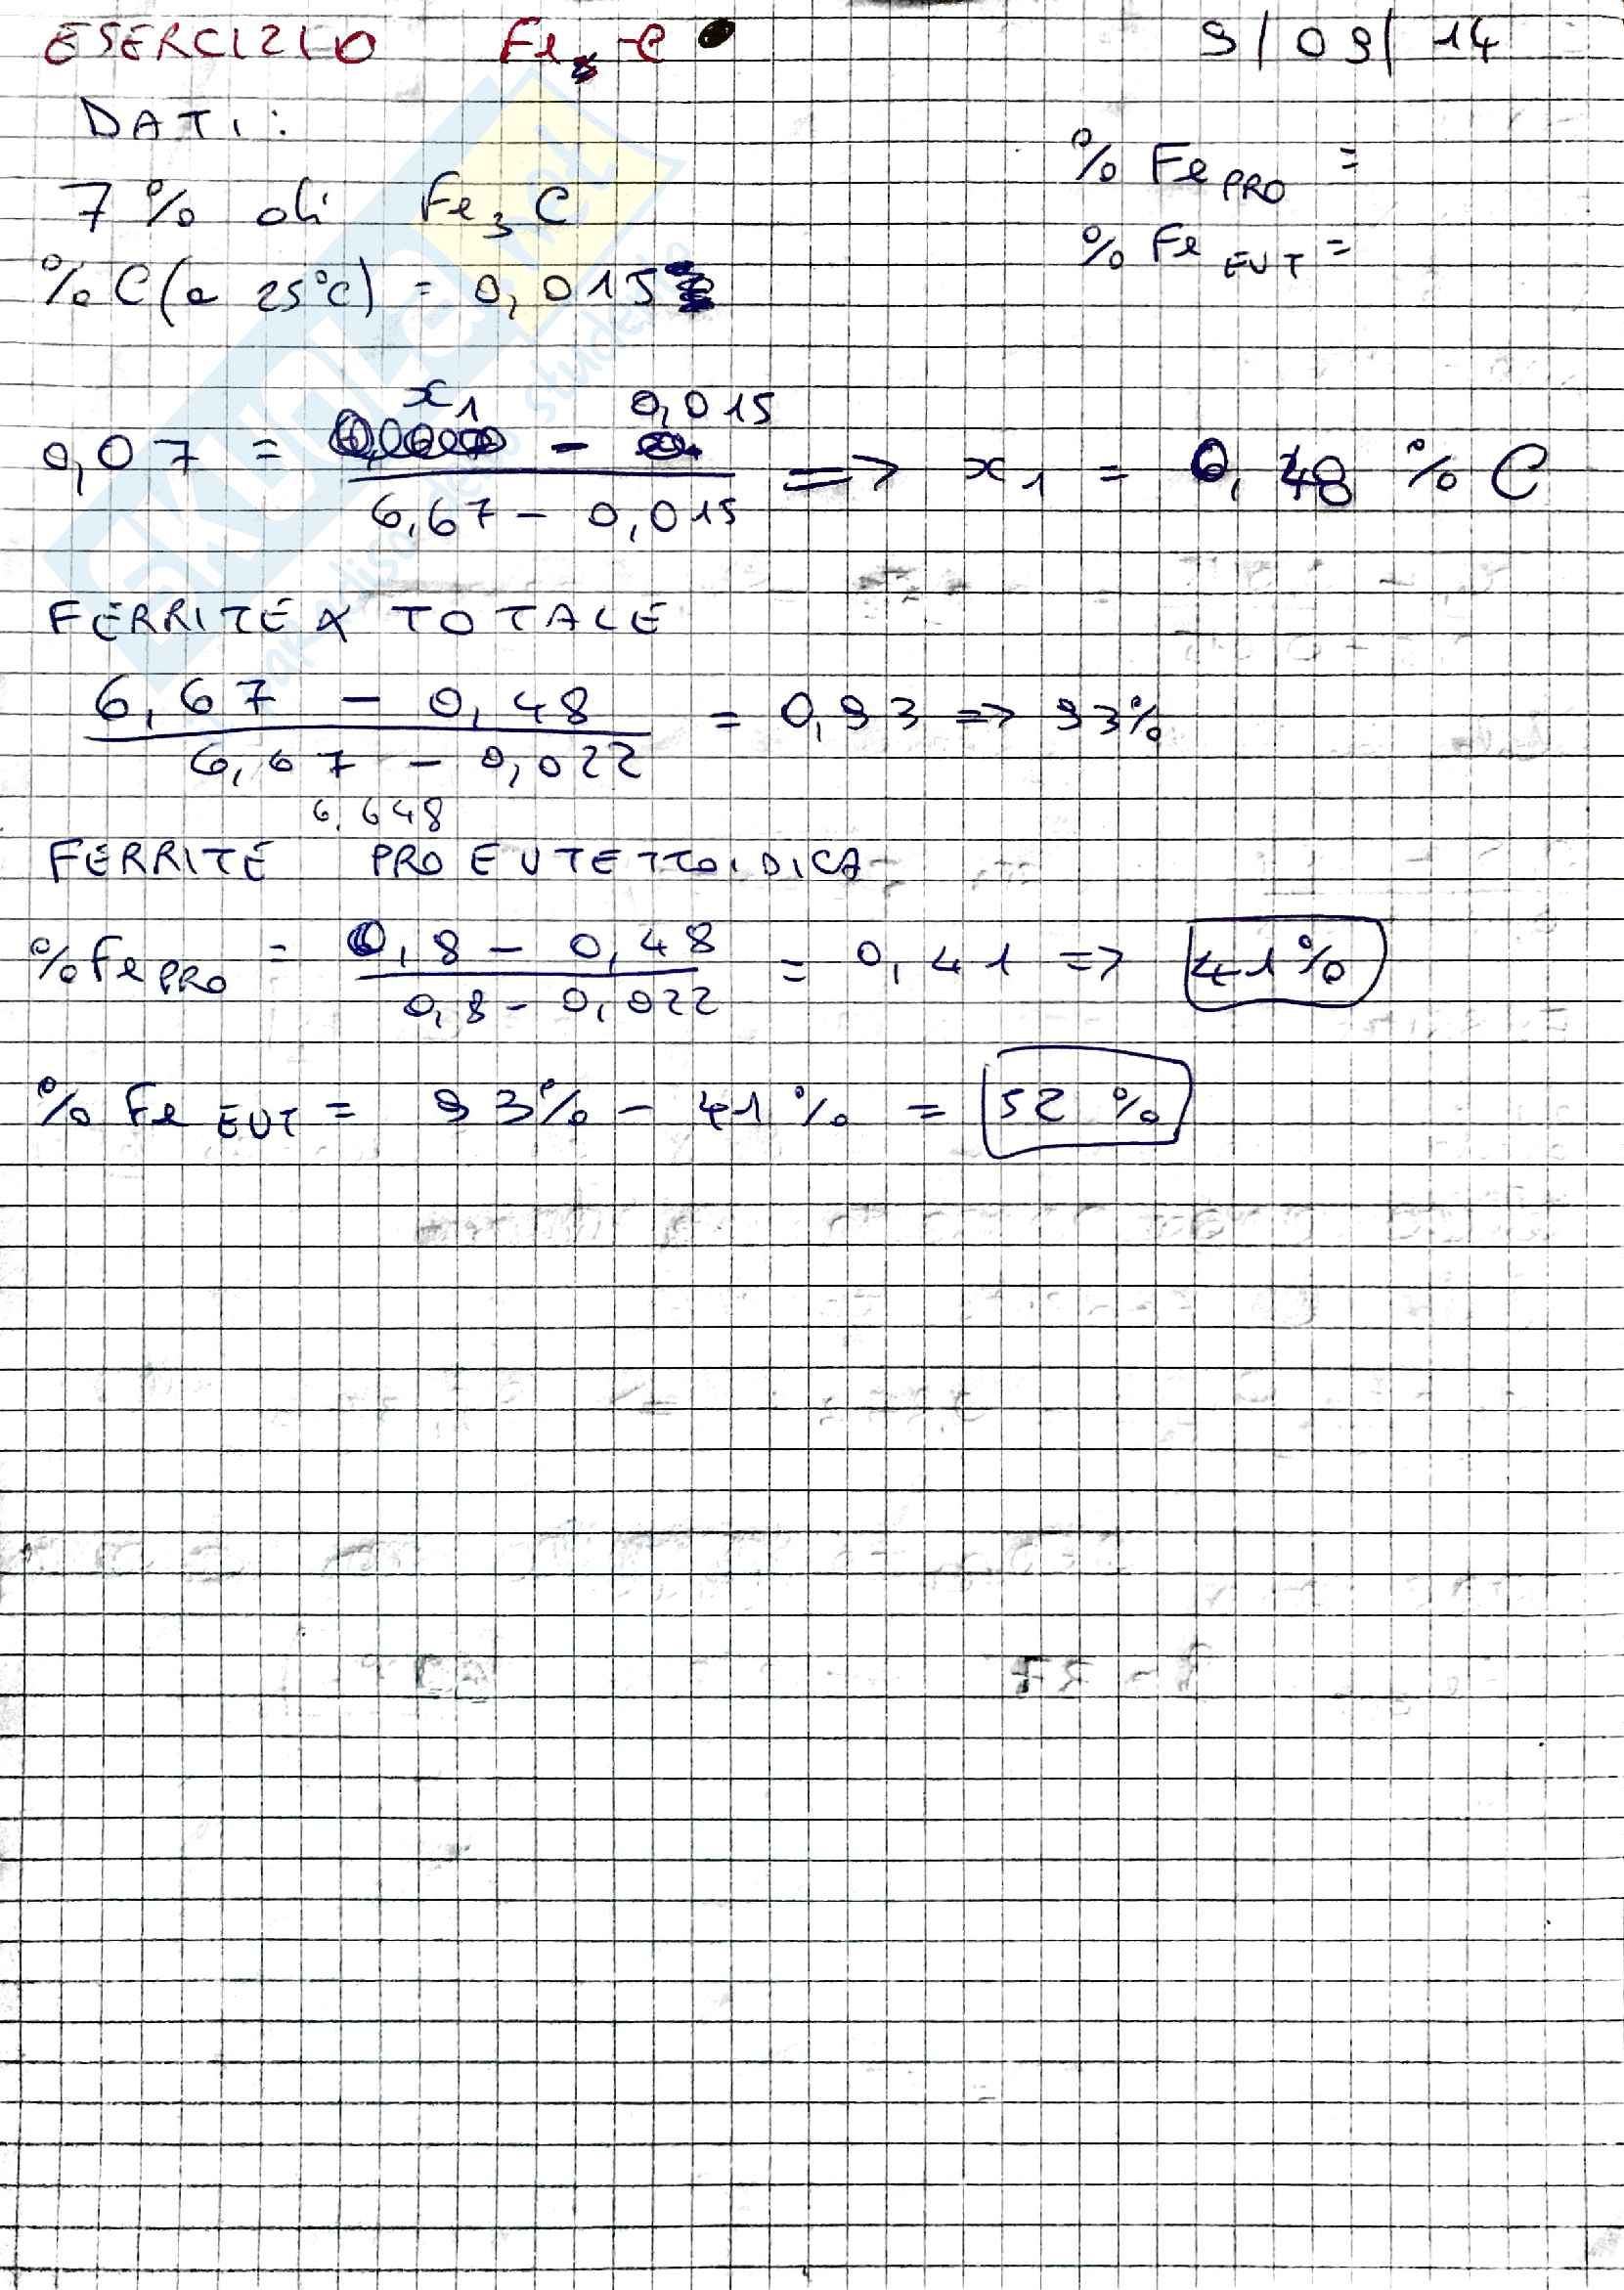 ESERCIZIO Fe - C 9/09/14
DATI:
7% di Fe3C
%C (a 25°C) = 0,015
% Fe PRO =
% Fe EUT =
0,07 = x1 - 0,015 / 6,67 - 0,015 => x1 = 0,48 % C
FERRITE α TOTALE
6,67 - 0,48 / 6,67 - 0,022 = 0,93 => 93%
6,648
FERRITE PROEUTETTOIDICA
% Fe PRO = 0,8 - 0,48 / 0,8 - 0,022 = 0,41 => 41%
% Fe EUT = 93% - 41% = 52 %